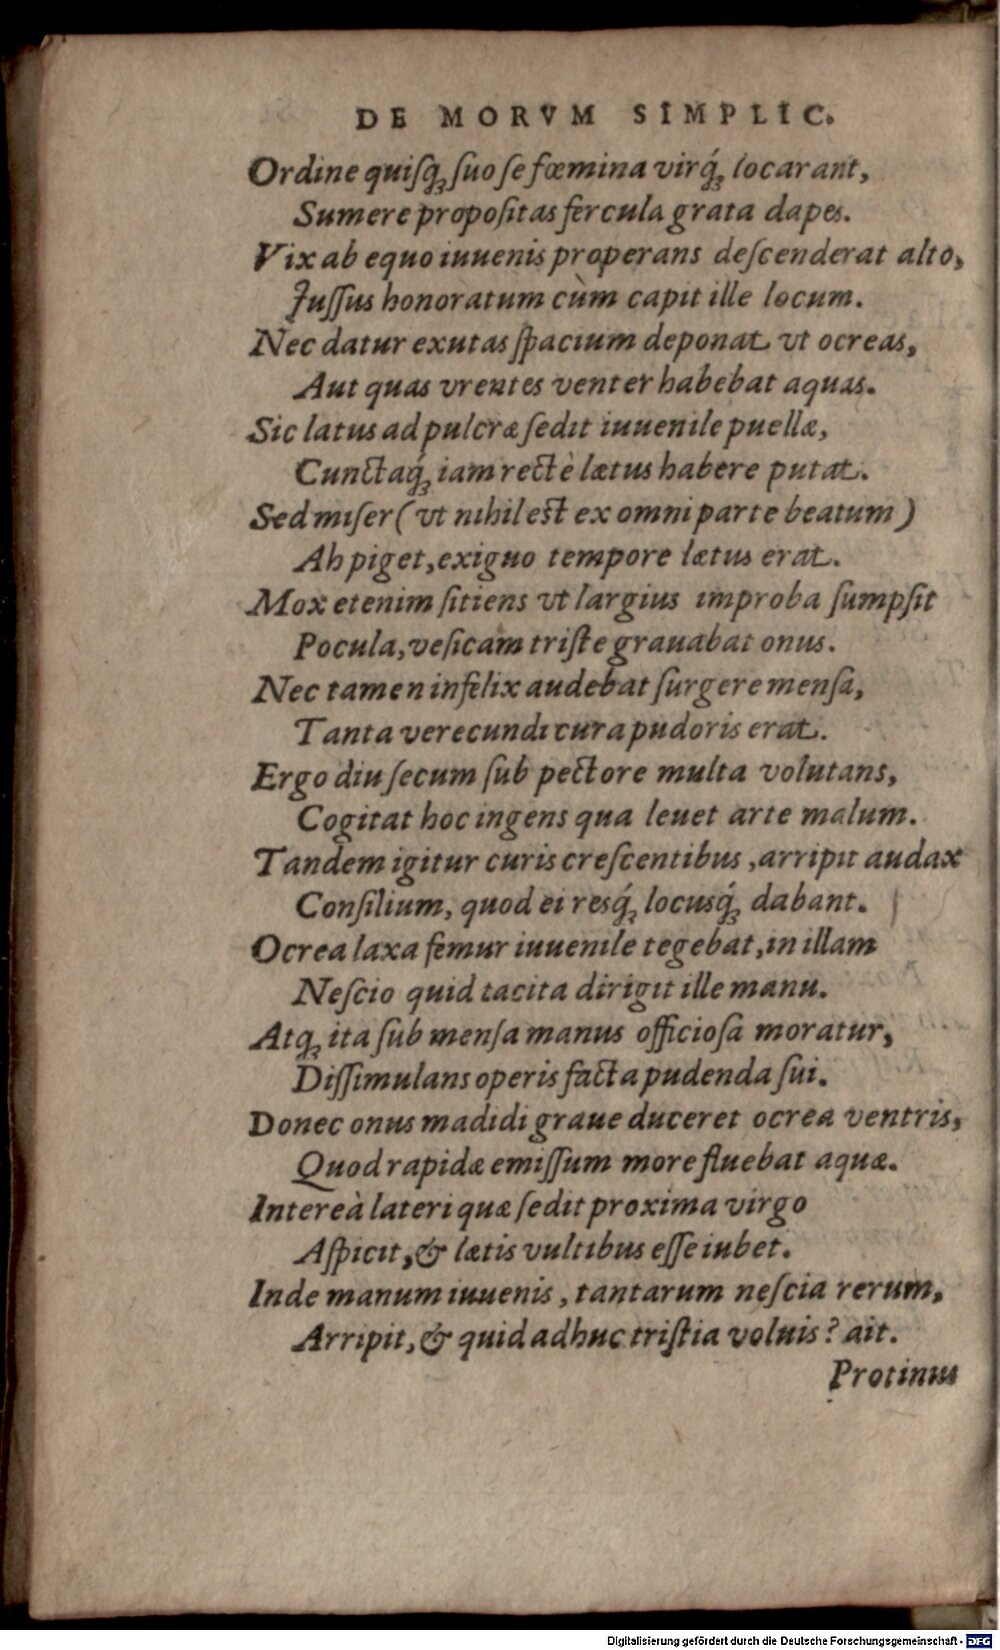 DE MORVM SIMPLIC.
Ordine quiſq́ꝫ ſuo ſe fœmina virq́ꝫ locarant,
Sumere propoſitas fercula grata dapes.
Vix ab equo iuuenis properans deſcenderat alto,
Iuſſus honoratum cùm capit ille locum.
Nec datur exutas ſpacium deponat vt ocreas,
Aut quas vrentes venter habebat aquas.
Sic latus ad pulcræ ſedit iuuenile puellæ,
Cunctaq́ꝫ iam rectè lætus habere putat.
Sed miſer (vt nihil est ex omni parte beatum)
Ah piget, exiguo tempore lætus erat.
Mox etenim ſitiens vt largius improba ſumpſit
Pocula, veſicam triſte grauabat onus.
Nec tamen infelix audebat ſurgere menſa,
Tanta verecundi cura pudoris erat.
Ergo diu ſecum ſub pectore multa volutans,
Cogitat hoc ingens qua leuet arte malum.
Tandem igitur curis creſcentibus, arripit audax
Conſilium, quod ei resq́ꝫ locusq́ꝫ dabant.
Ocrea laxa femur iuuenile tegebat, in illam
Neſcio quid tacita dirigit ille manu.
Atqꝫ ita ſub menſa manus officioſa moratur,
Diſſimulans operis facta pudenda ſui.
Donec onus madidi graue duceret ocrea ventris,
Quod rapidæ emiſſum more fluebat aquæ.
Intereà lateri quæ ſedit proxima virgo
Aſpicit, & lætis vultibus eſſe iubet.
Inde manum iuuenis, tantarum neſcia rerum,
Arripit, & quid adhuc triſtia voluis? ait.
Protinus
Digitalisierung gefördert durch die Deutsche Forschungsgemeinschaft - DFG